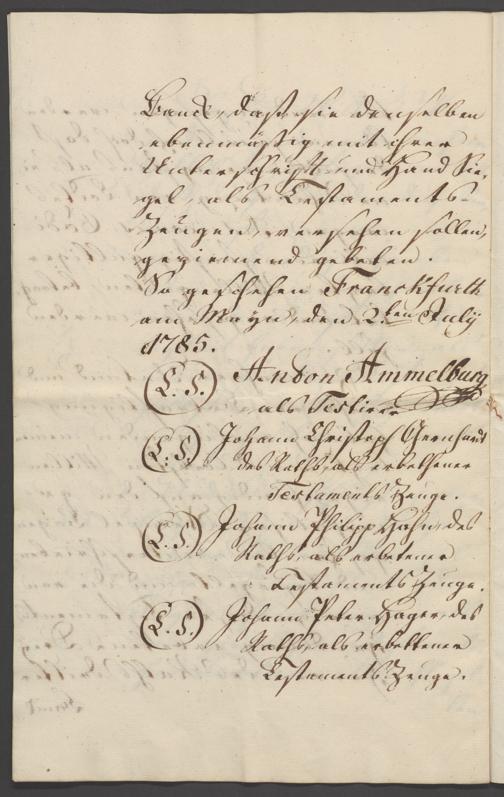 Banck, daß sie denselben
ebenmäßig mit ihrer
Unterschrifft und Hand Sie-
gel, als Testaments-
Zeugen, versehen sollen,
geziemend gebeten.
So geschehen Franckfurth
am Mayn, den 2.ten July
1785.
(L. S.) Anton Ammelburg
als Testirer
(L. S.) Johann Christoph Gernhardt
des Raths, als erbethener
Testaments Zeuge.
(L. S.) Johann Philipp Hahn, des
Raths, als erbetener
Testaments Zeuge.
(L. S.) Johann Peter Hager, des
Raths, als erbettener
Testaments Zeuge.